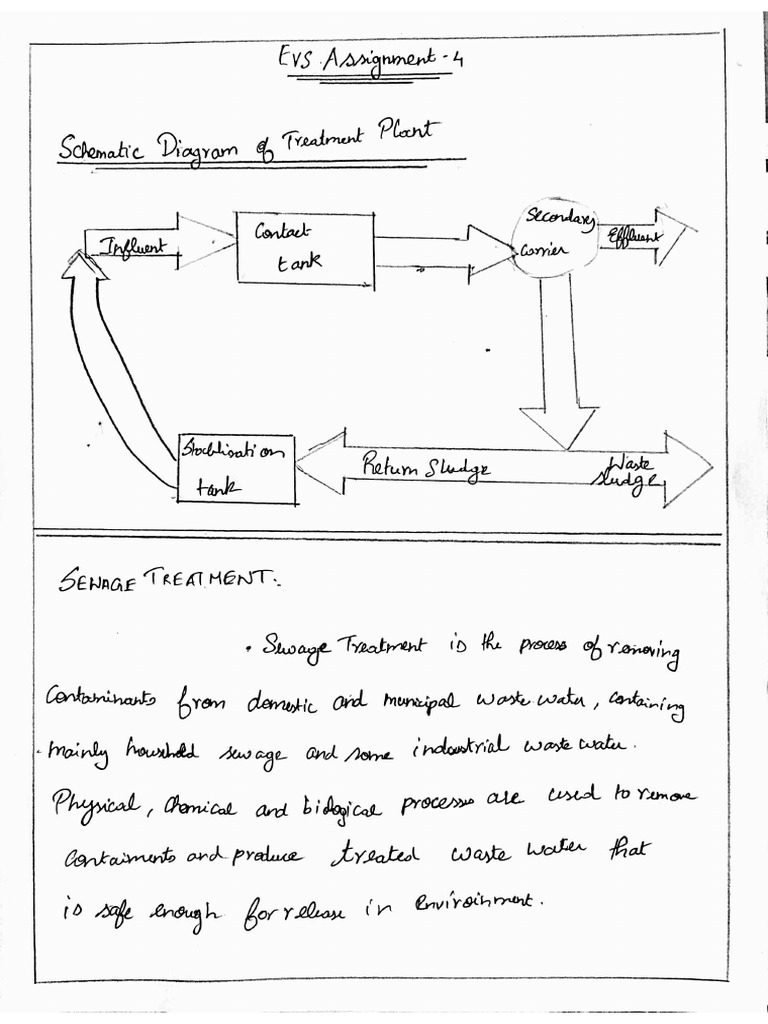 EVS. Assignment - 4
Schematic Diagram of Treatment Plant
Influent
Contact
tank
Secondary
Carrier
Effluent
Stabilisation
tank
Return Sludge
Waste
sludge
SEWAGE TREATMENT:.
• Sewage Treatment is the process of removing
Contaminants from domestic and municipal waste water, containing
mainly household sewage and some industrial waste water.
Physical, Chemical and biological processes are used to remove
Contaiments and produce treated waste water that
is safe enough for release in Environment.